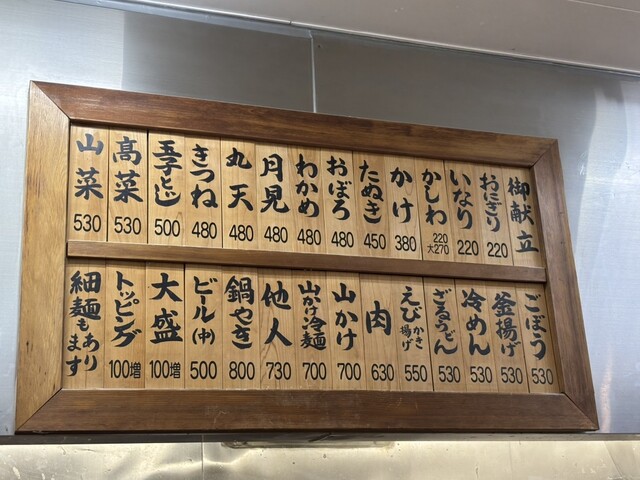 御献立
おにぎり 220
いなり 220
かしわ 220 大270
かけ 380
たぬき 450
おぼろ 480
わかめ 480
月見 480
丸天 480
きつね 480
玉子とじ 500
高菜 530
山菜 530
ごぼう 530
釜揚げ 530
冷めん 530
ざるうどん 530
えびかき揚げ 550
肉 630
山かけ 700
山かけ冷麺 700
他人 730
鍋やき 800
ビール(中) 500
大盛 100増
トッピング 100増
細麺もあります